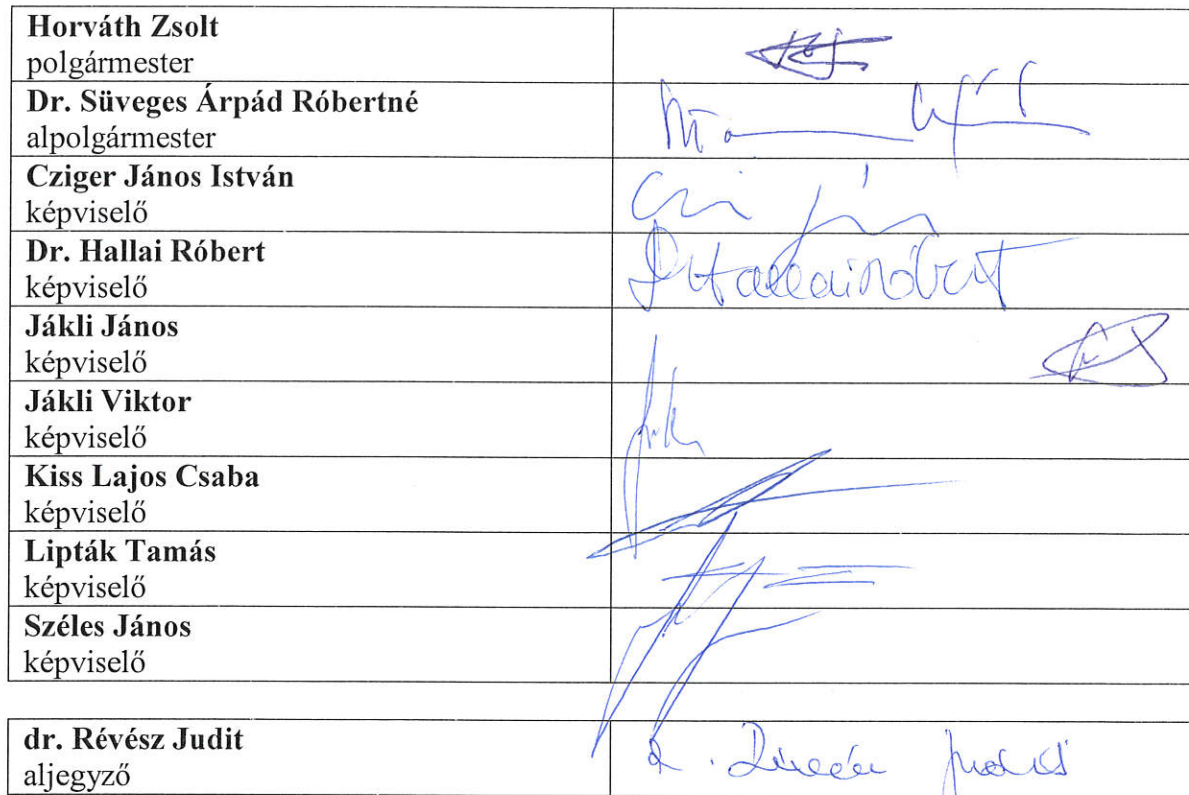 Horváth Zsolt
polgármester
Dr. Süveges Árpád Róbertné
alpolgármester
Cziger János István
képviselő
Dr. Hallai Róbert
képviselő
Dr Hallai Róbert
Jákli János
képviselő
Jákli Viktor
képviselő
Kiss Lajos Csaba
képviselő
Lipták Tamás
képviselő
Széles János
képviselő
dr. Révész Judit
aljegyző